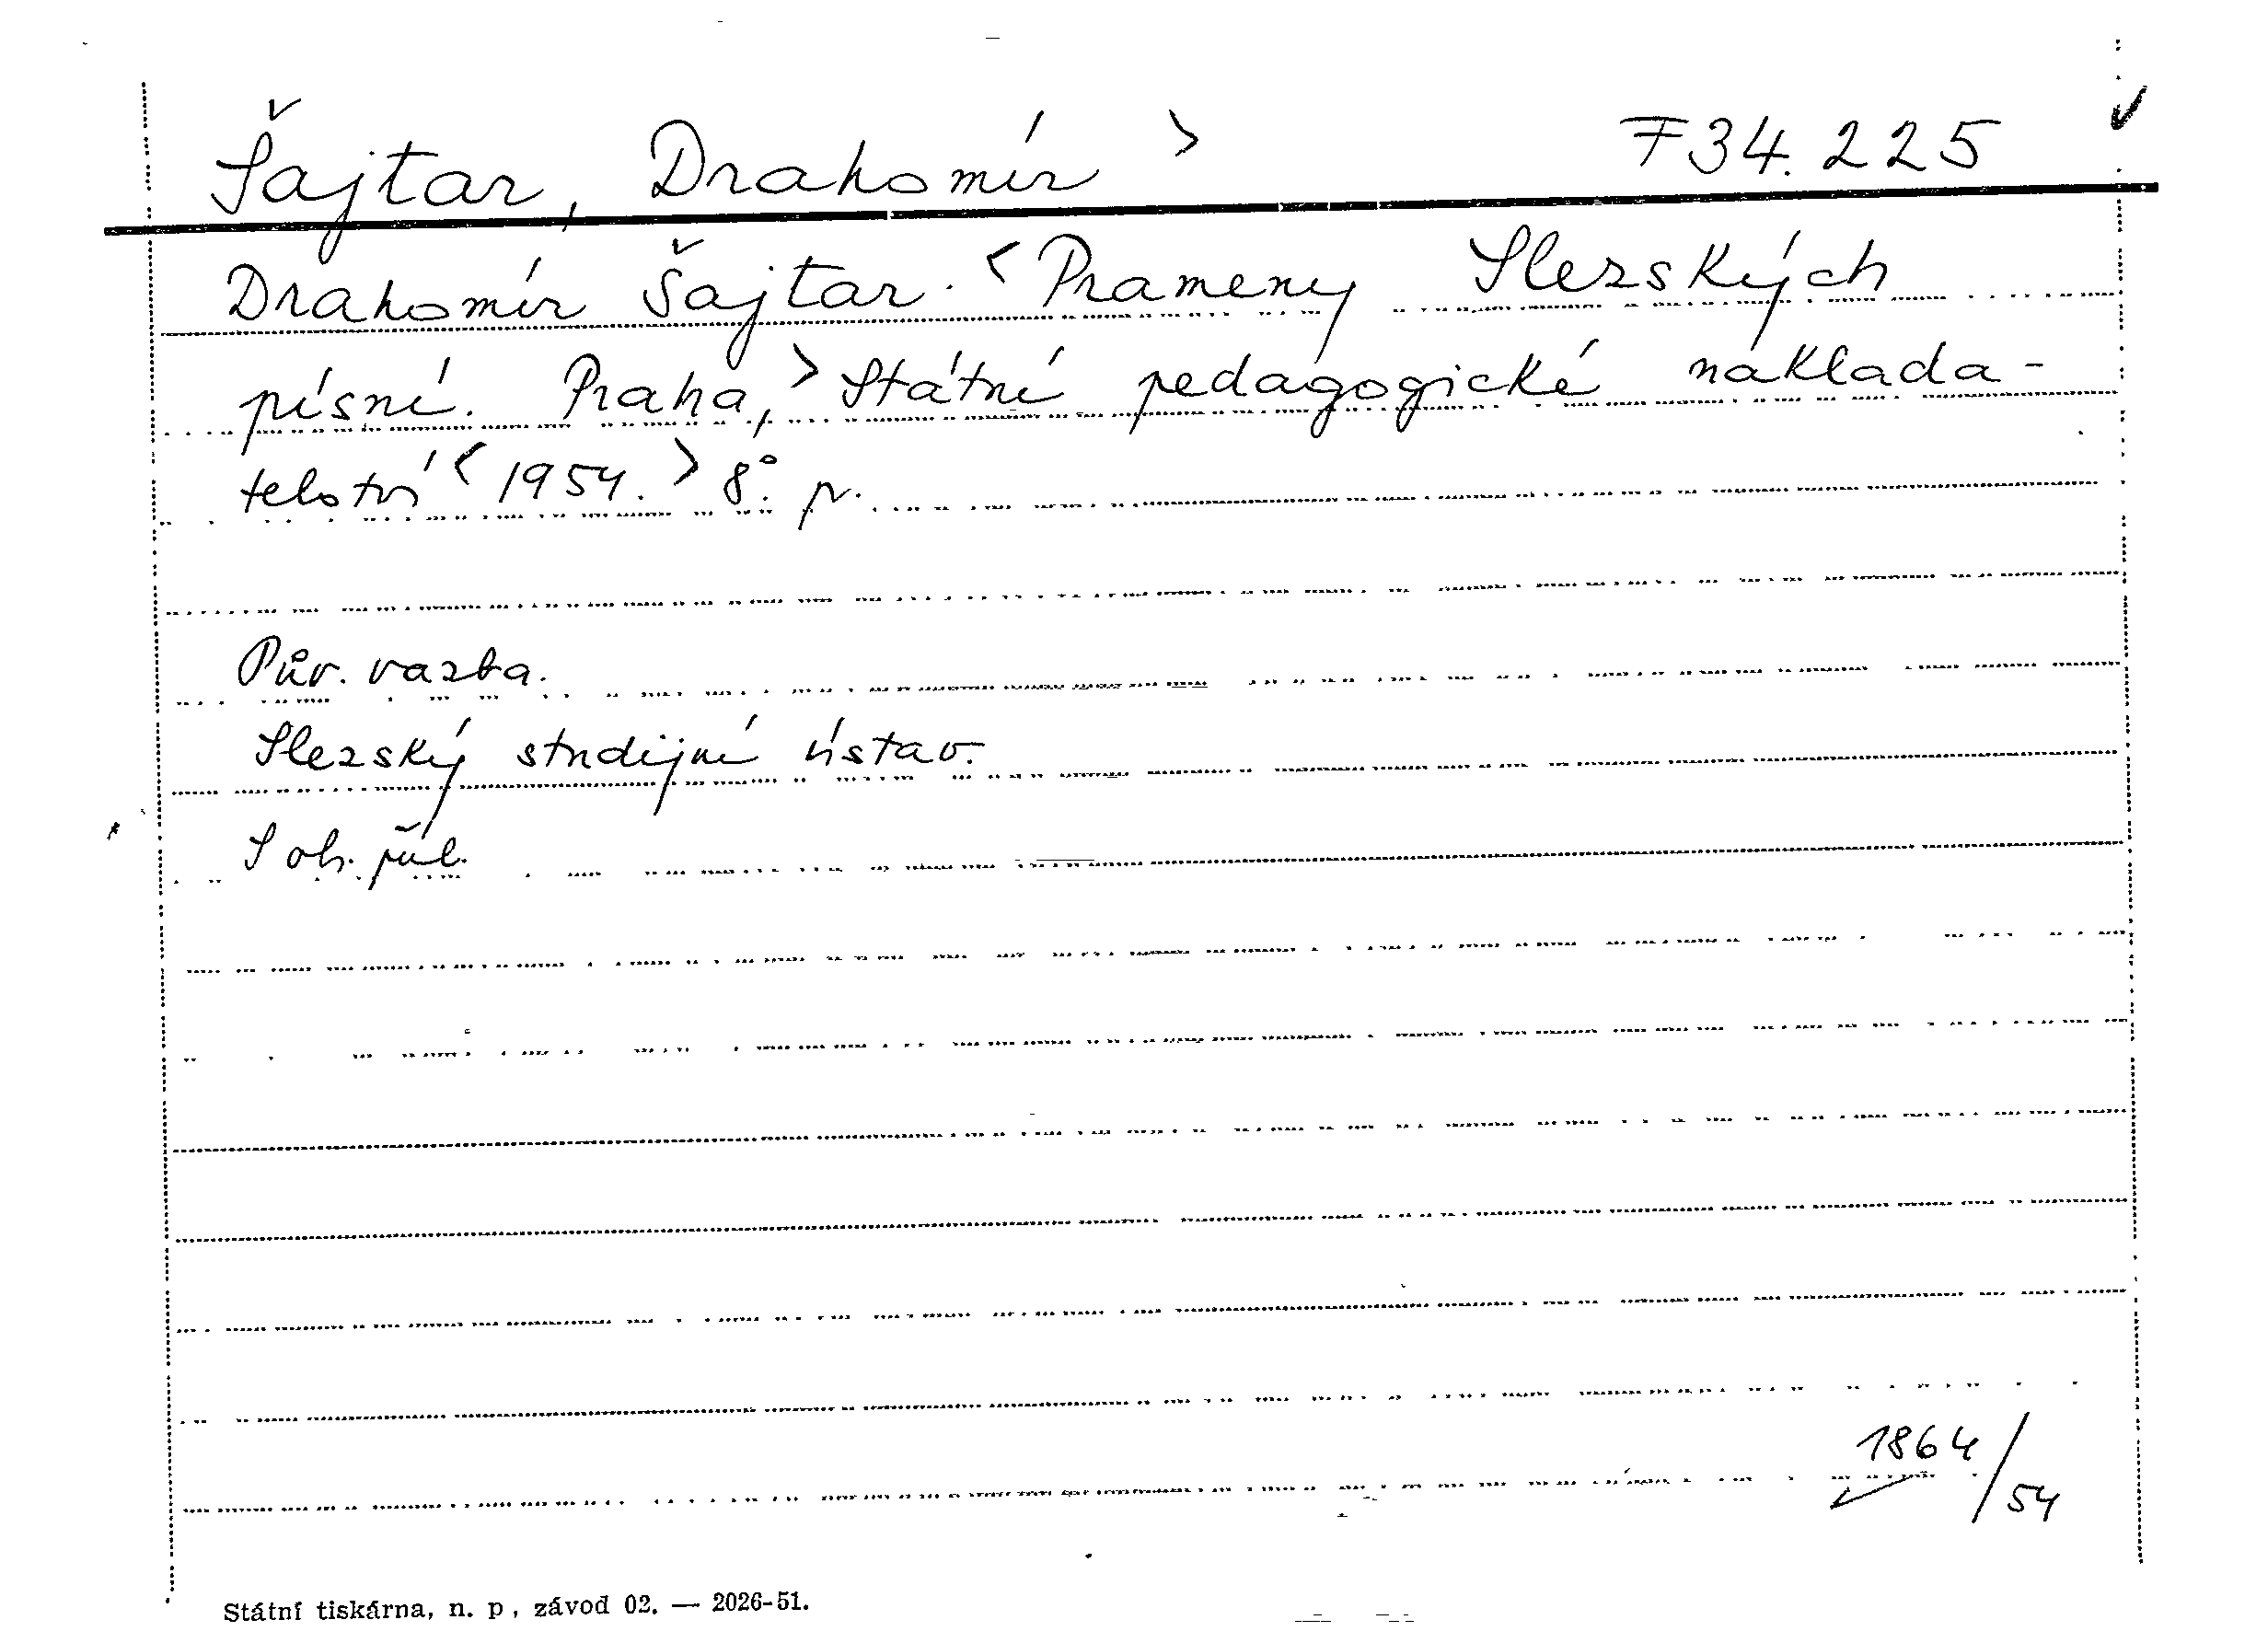 Šajtar, Drahomír > F 34.225
Drahomír Šajtar. <Prameny Slezských
písní. Praha,> Státní pedagogické naklada-
telství <1954.> 8°. p.
Pův. vazba.
Slezský studijní ústav.
S ob. příl.
1864/54
Státní tiskárna, n. p., závod 02. — 2026-51.